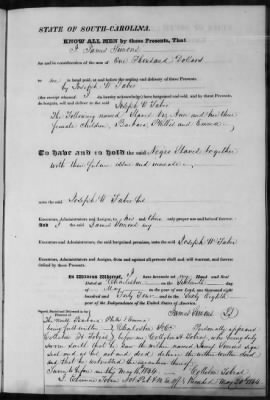 STATE OF SOUTH-CAROLINA.
KNOW ALL MEN by these Presents, That
I James Simons
for and in consideration of the sum of One Thousand Dollars
to me in hand paid, at and before the sealing and delivery of these Presents,
by Joseph W Faber
(the receipt whereof I do hereby acknowledge) have bargained and sold, and by these Presents,
do bargain, sell and deliver to the said Joseph W Faber
The Following named Slaves Viz Ann and her three
female children, Barbara Phillis and Emma,
To have and to hold the said Negro Slaves together
with their future issue and increase
unto the said Joseph W Faber his
Executors, Administrators and Assigns, to his and their only proper use and behoof forever.
And I the said James Simons my
Executors and Administrators, the said bargained premises, unto the said Joseph W Faber
Executors, Administrators and Assigns, from and against all persons shall and will warrant, and forever
defend by these Presents.
In Witness Whereof, I have hereunto set my Hand and Seal
Dated at Charleston on the Sixteenth day of
May in the year of our Lord, one thousand eight
hundred and Forty Four and in the Sixty Eighth
year of the Independence of the United States of America.
Signed, Sealed and Delivered in the
Presence of
James Simons
The words Barbara Phillis & Emma
being first written
Charleston
Personally appeared
before me
who being duly
sworn
the within named James Simons sign
seal and as his act and deed deliver the within written deed
and that he witnessed the execution thereof.
Sworn to before me this May 16, 1844.
Recorded May 20th 1844